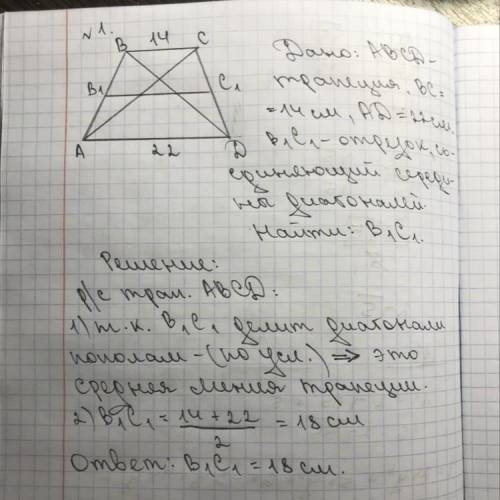 №1.
B 14 C
B₁ C₁
A 22 D
Дано: ABCD-
трапеция, BC=
=14 см, AD=22 см.
B₁C₁-отрезок, со-
единяющий середи-
ны диагоналей.
Найти: B₁C₁.
Решение:
р/с трап. ABCD:
1) т.к. B₁C₁ делит диагонали
пополам-(по усл.) ⇒ это
средняя линия трапеции.
2) B₁C₁ = 14+22/2 = 18 см
Ответ: B₁C₁ = 18 см.